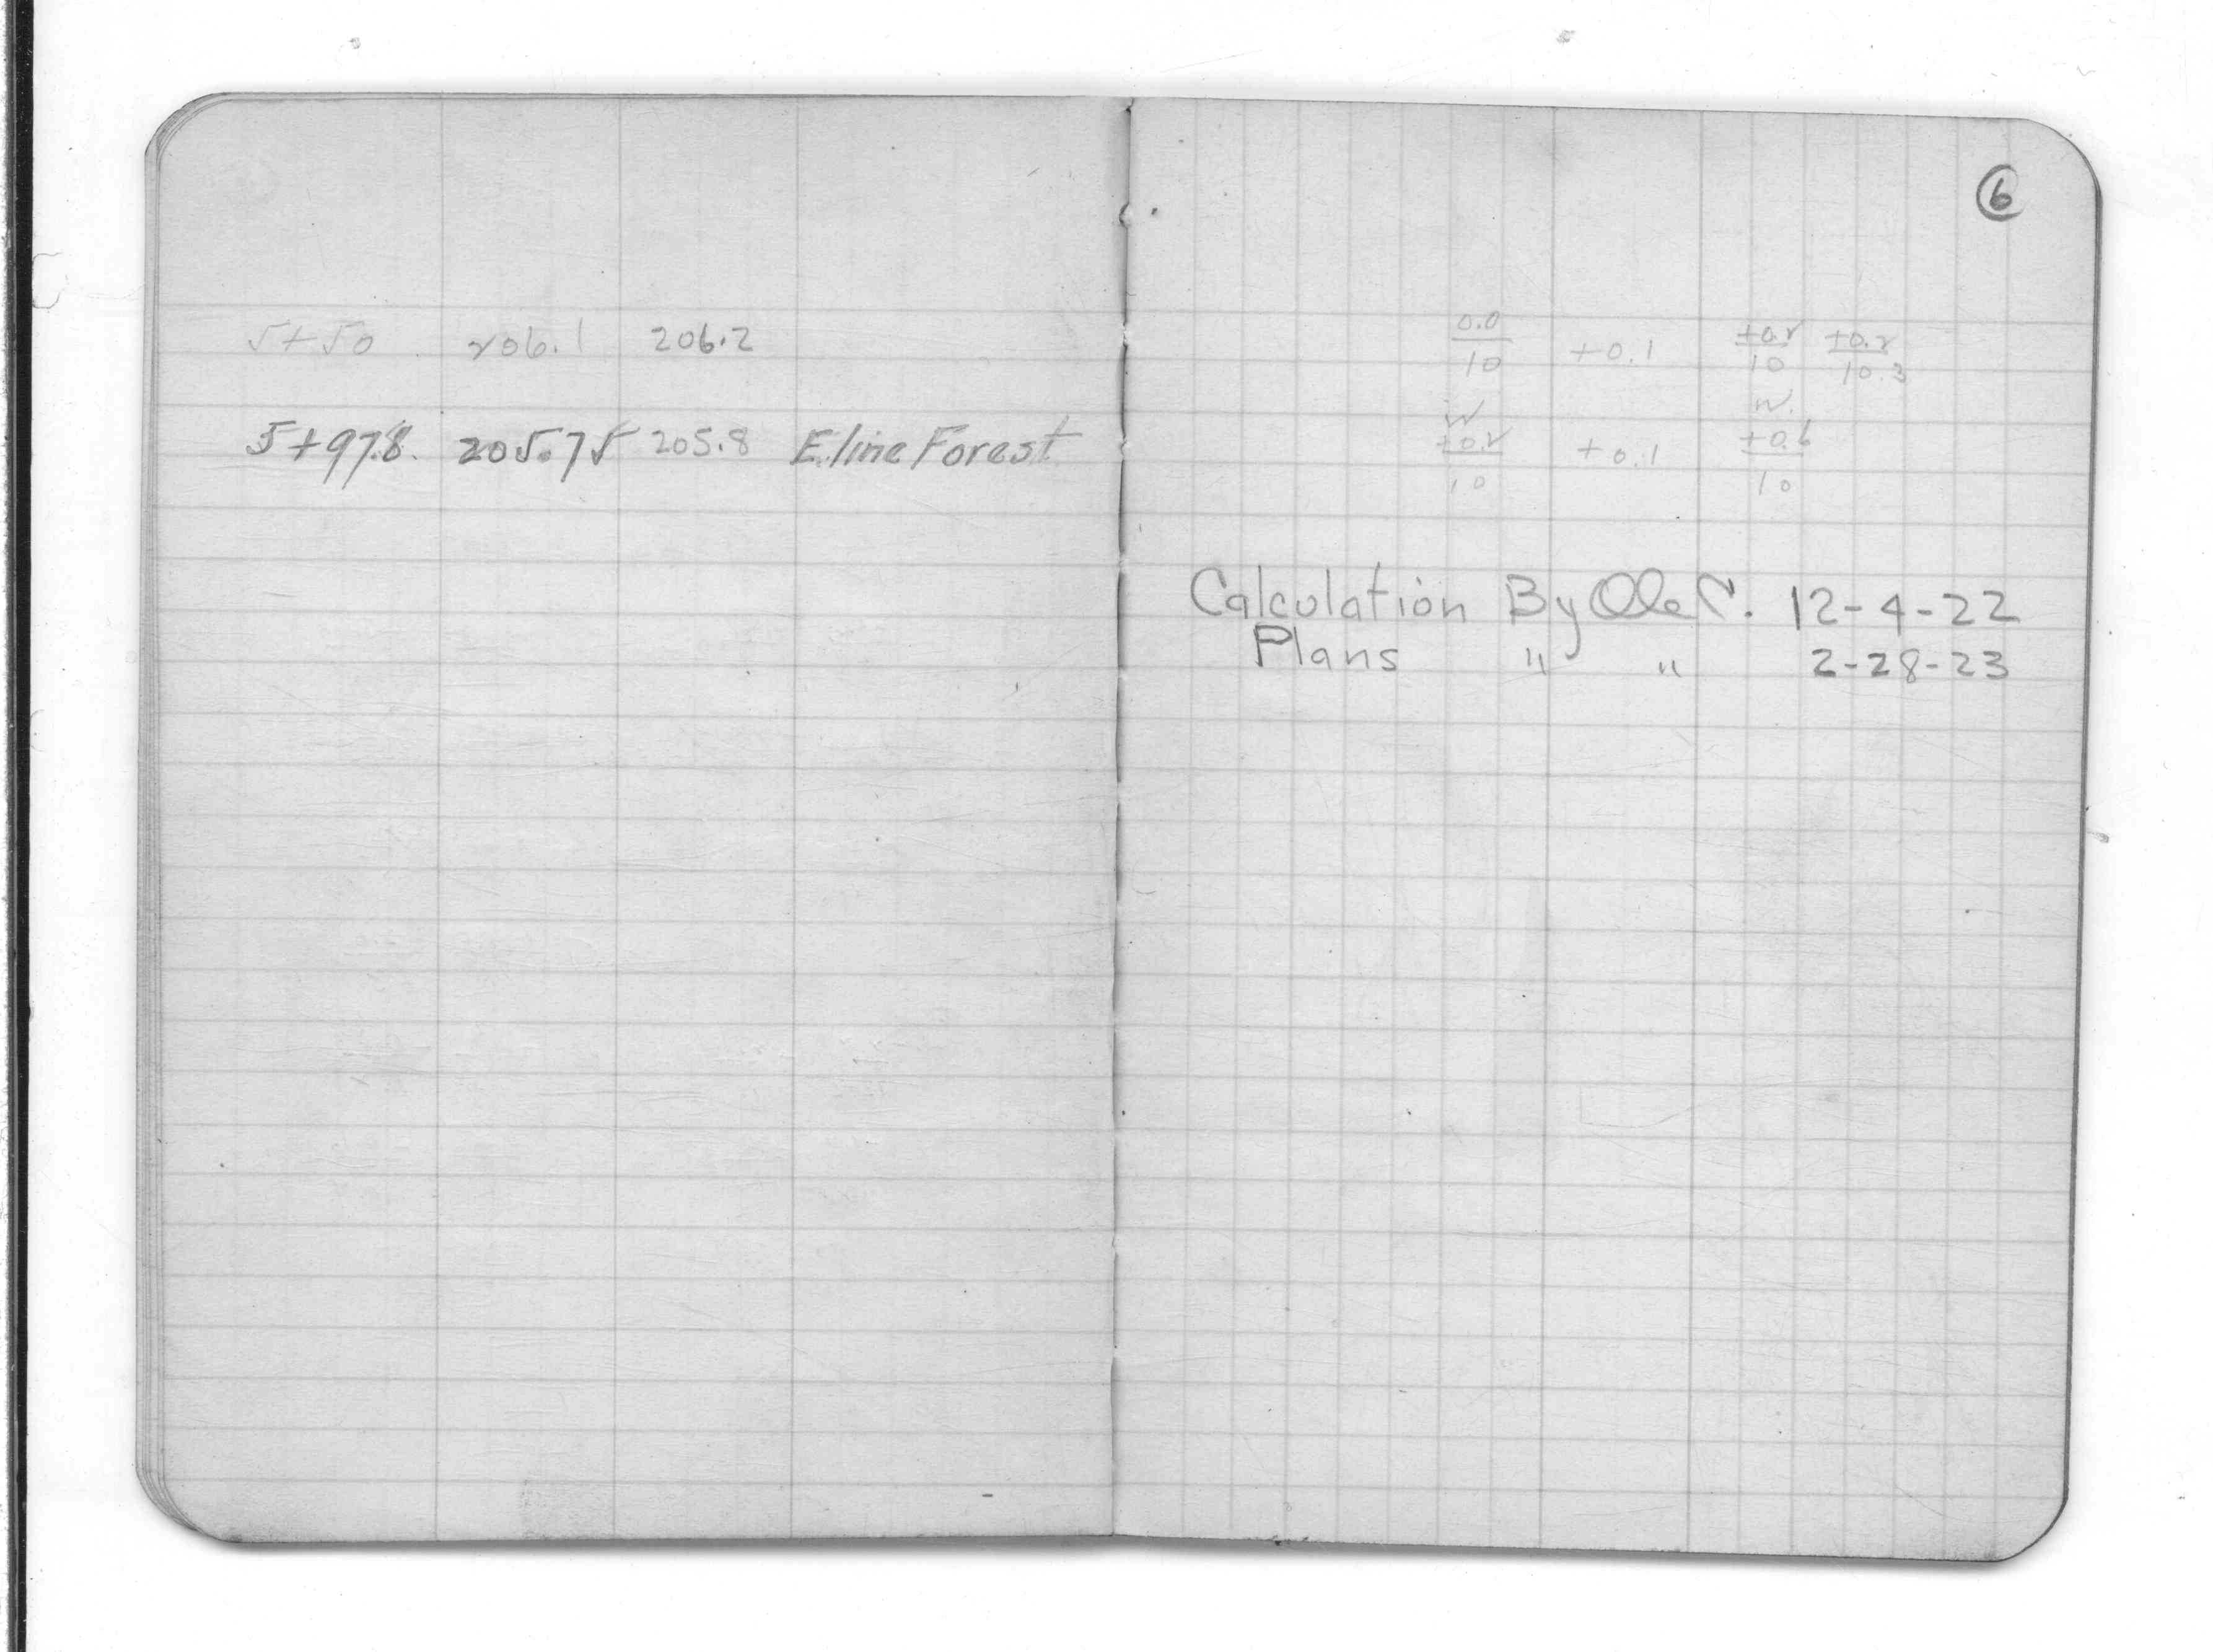 6
5+50 206.1 206.2
0.0/10 +0.1 +0.2/10 +0.2/10.3
5+97.8 205.75 205.8 E. line Forest
W W.
+0.2/10 +0.1 +0.6/10
Calculation By Ole C. 12-4-22
Plans " " 2-28-23